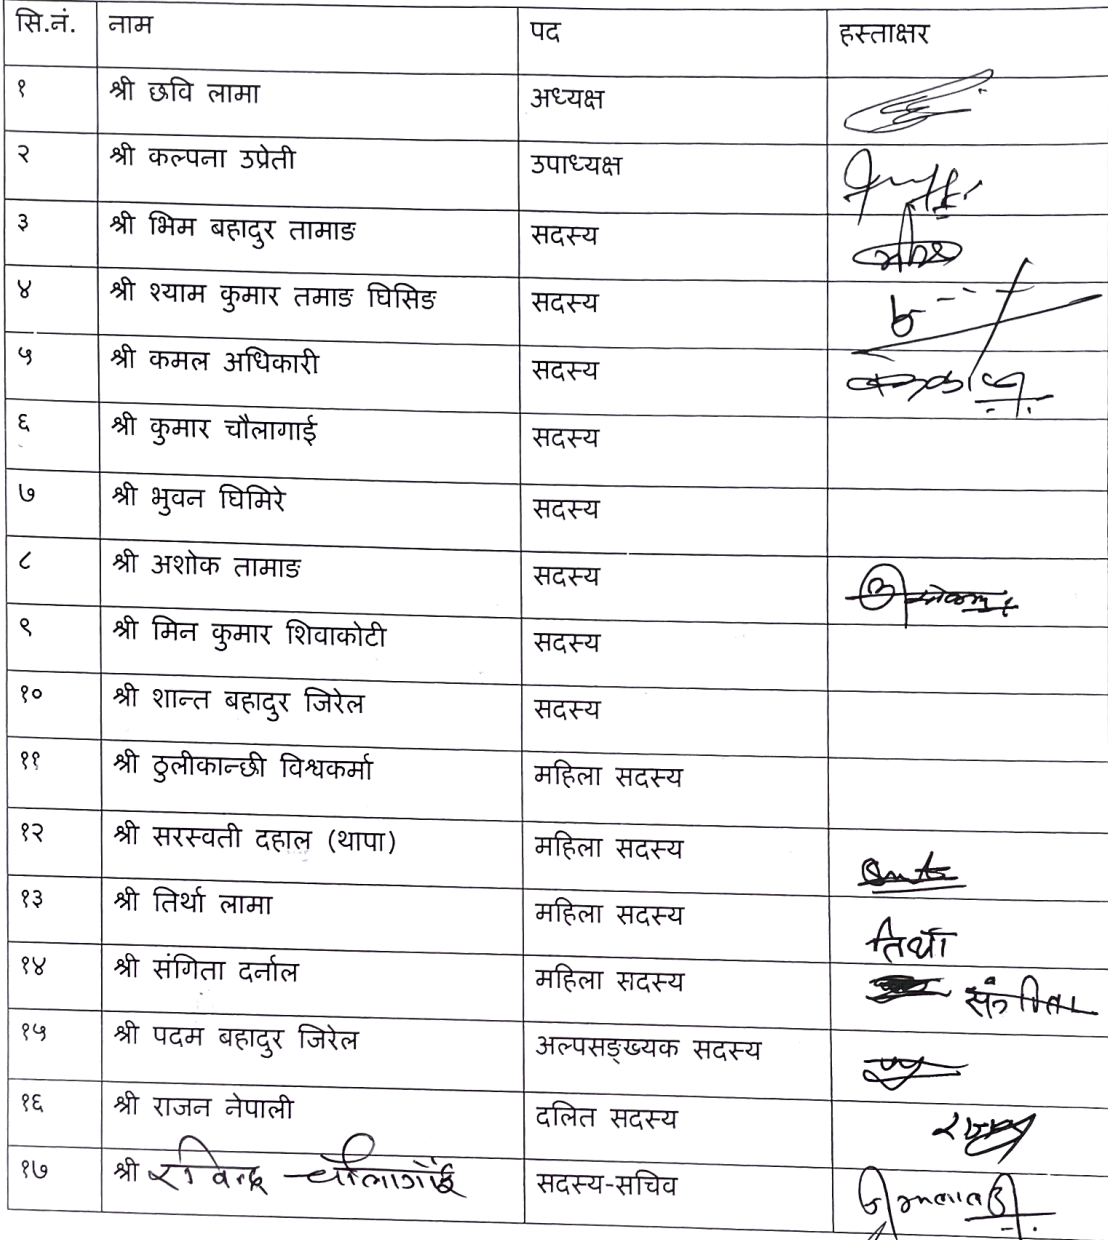 सि.नं. नाम पद हस्ताक्षर
१ श्री छवि लामा अध्यक्ष
२ श्री कल्पना उप्रेती उपाध्यक्ष
३ श्री भिम बहादुर तामाङ सदस्य
४ श्री श्याम कुमार तमाङ घिसिङ सदस्य
५ श्री कमल अधिकारी सदस्य
६ श्री कुमार चौलागाई सदस्य
७ श्री भुवन घिमिरे सदस्य
८ श्री अशोक तामाङ सदस्य
९ श्री मिन कुमार शिवाकोटी सदस्य
१० श्री शान्त बहादुर जिरेल सदस्य
११ श्री ठुलीकान्छी विश्वकर्मा महिला सदस्य
१२ श्री सरस्वती दहाल (थापा) महिला सदस्य
१३ श्री तिर्था लामा महिला सदस्य तिर्था
१४ श्री संगिता दर्नाल महिला सदस्य संगिता
१५ श्री पदम बहादुर जिरेल अल्पसङ्ख्यक सदस्य
१६ श्री राजन नेपाली दलित सदस्य
१७ श्री रविन्द्र चौलागाँई सदस्य-सचिव